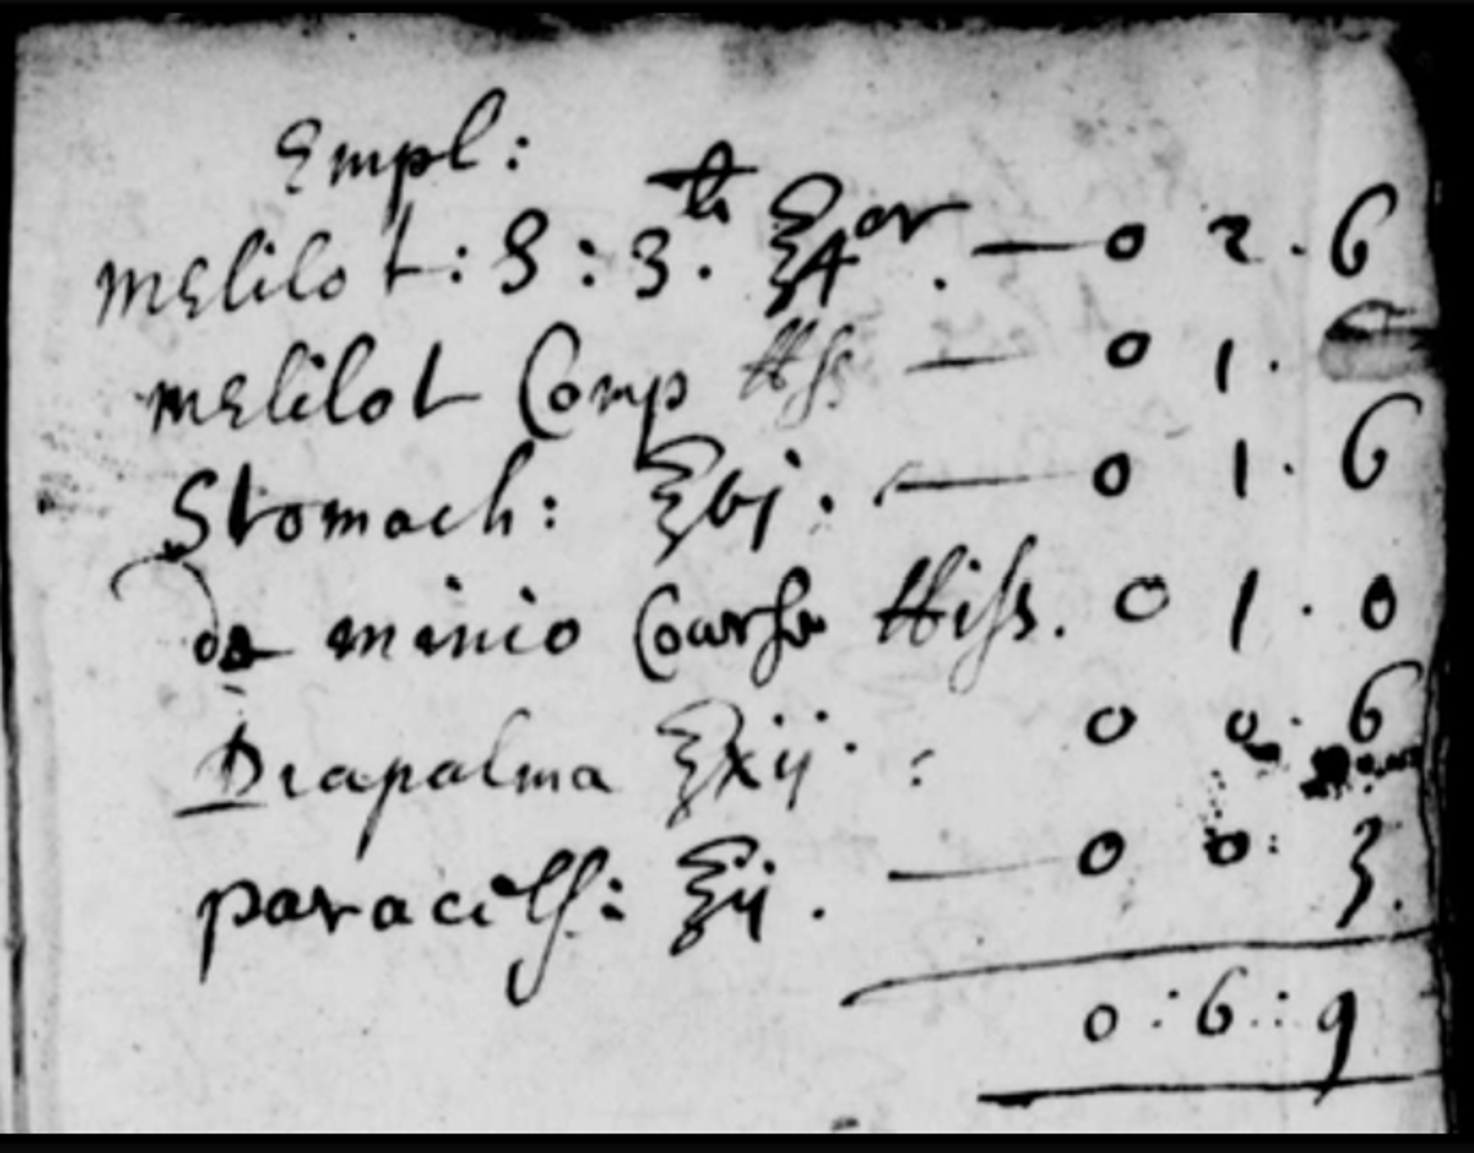 Empl:
Melilot: S: 3. ℔ ℥4or. — 0 2. 6
Melilot Comp ℔ß — 0 1.
Stomach: ℥vj. — 0 1. 6
de minio Coarse ℔iſs. 0 1. 0
Diapalma ℥xij. : 0 0. 6
paracelſ: ℥ij. — 0 0: 3.
0 : 6 : 9